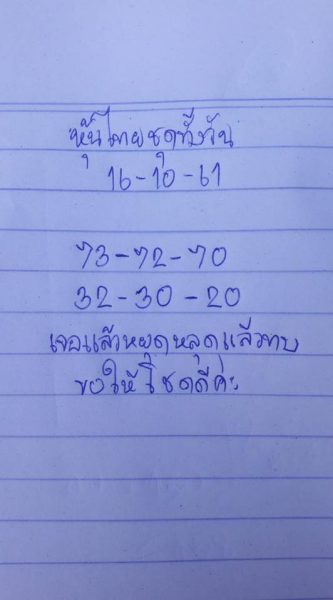 หุ้นไทยชุดทั้งวัน
16-10-61
73-72-70
32-30-20
เจอแล้วหยุดหลุดแล้วทบ
ขอให้โชคดีค่ะ